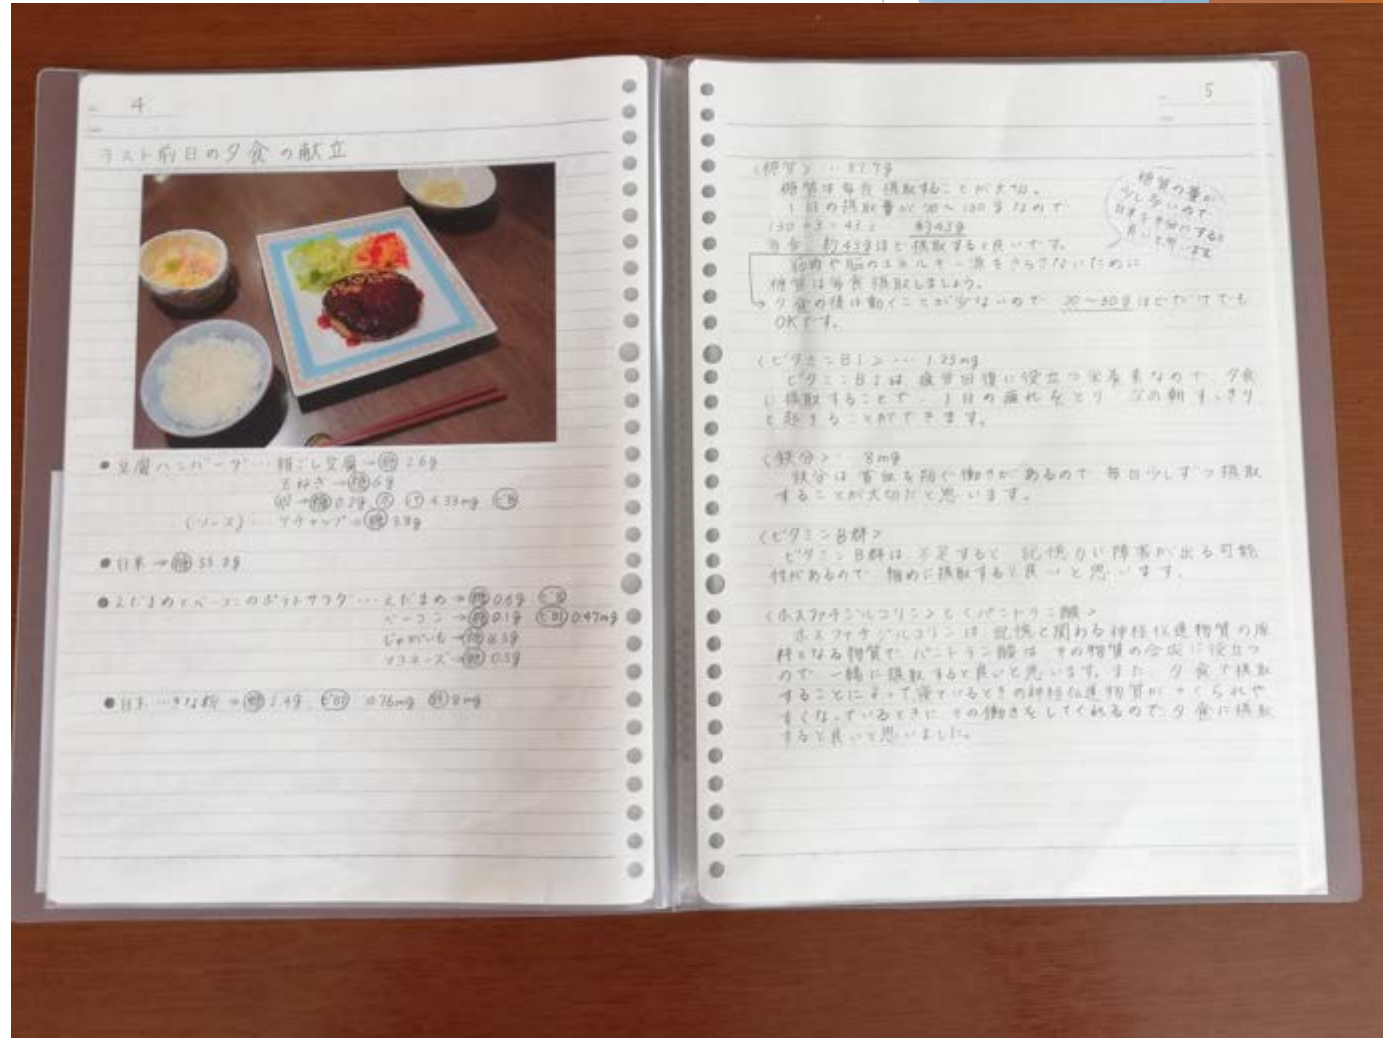 4
テスト前日の夕食の献立
● 豆腐ハンバーグ…絹ごし豆腐→糖 2.6g
玉ねぎ→糖 6g
卵→糖 0.2g ホ パ 4.33mg ビB
(ソース) ケチャップ→糖 3.8g
● 白米→糖
● えだまめとベーコンのポテトサラダ…えだまめ→糖 0.6g ビB
ベーコン→糖 0.1g ビB1 0.47mg
じゃがいも→糖
マヨネーズ→糖 0.5g
● きな粉→糖 ビB1 0.76mg 鉄 8mg
5
<糖質>
糖質は毎食摂取することが大切。
1日の摂取量が 130gなので
130÷3=43.3 約43g
毎食、約43gほど摂取すると良いです。
筋肉や脳のエネルギー源をきらさないために
糖質は毎食摂取しましょう。
→夕食の後は動くことが少ないので、20〜30gほどだけでも
OKです。
糖質の量が
少し多いので
半分にすると
良いと思います
<ビタミンB1>… 1.23mg
ビタミンB1は、疲労回復に役立つ栄養素なので、夕食
に摂取することで、1日の疲れをとり、次の朝すっきり
と起きることができます。
<鉄分> 8mg
鉄分は貧血を防ぐ働きがあるので、毎日少しずつ摂取
することが大切だと思います。
<ビタミンB群>
ビタミンB群は、不足すると、記憶力に障害が出る可能
性があるので、摂取すると良いと思います。
<ホスファチジルコリン>と<パントテン酸>
ホスファチジルコリンは、記憶と関わる神経伝達物質の原
料となる物質で、パントテン酸は、その物質の合成に役立つ
ので、一緒に摂取すると良いと思います。また、夕食で摂取
することによって寝ているときの神経伝達物質がつくられや
すくなっているときに、その働きをしてくれるので、夕食に摂取
すると良いと思いました。